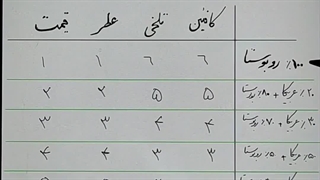 کافئین تلخی عطر قیمت
۱۰۰٪ روبوستا ۶ ۶ ۱ ۱
۲۰٪ عربیکا + ۸۰٪ روبوستا ۵ ۵ ۲ ۲
۳۰٪ عربیکا + ۷۰٪ روبوستا ۴ ۴ ۳ ۳
۵۰٪ عربیکا + ۵۰٪ روبوستا ۳ ۳ ۴ ۴